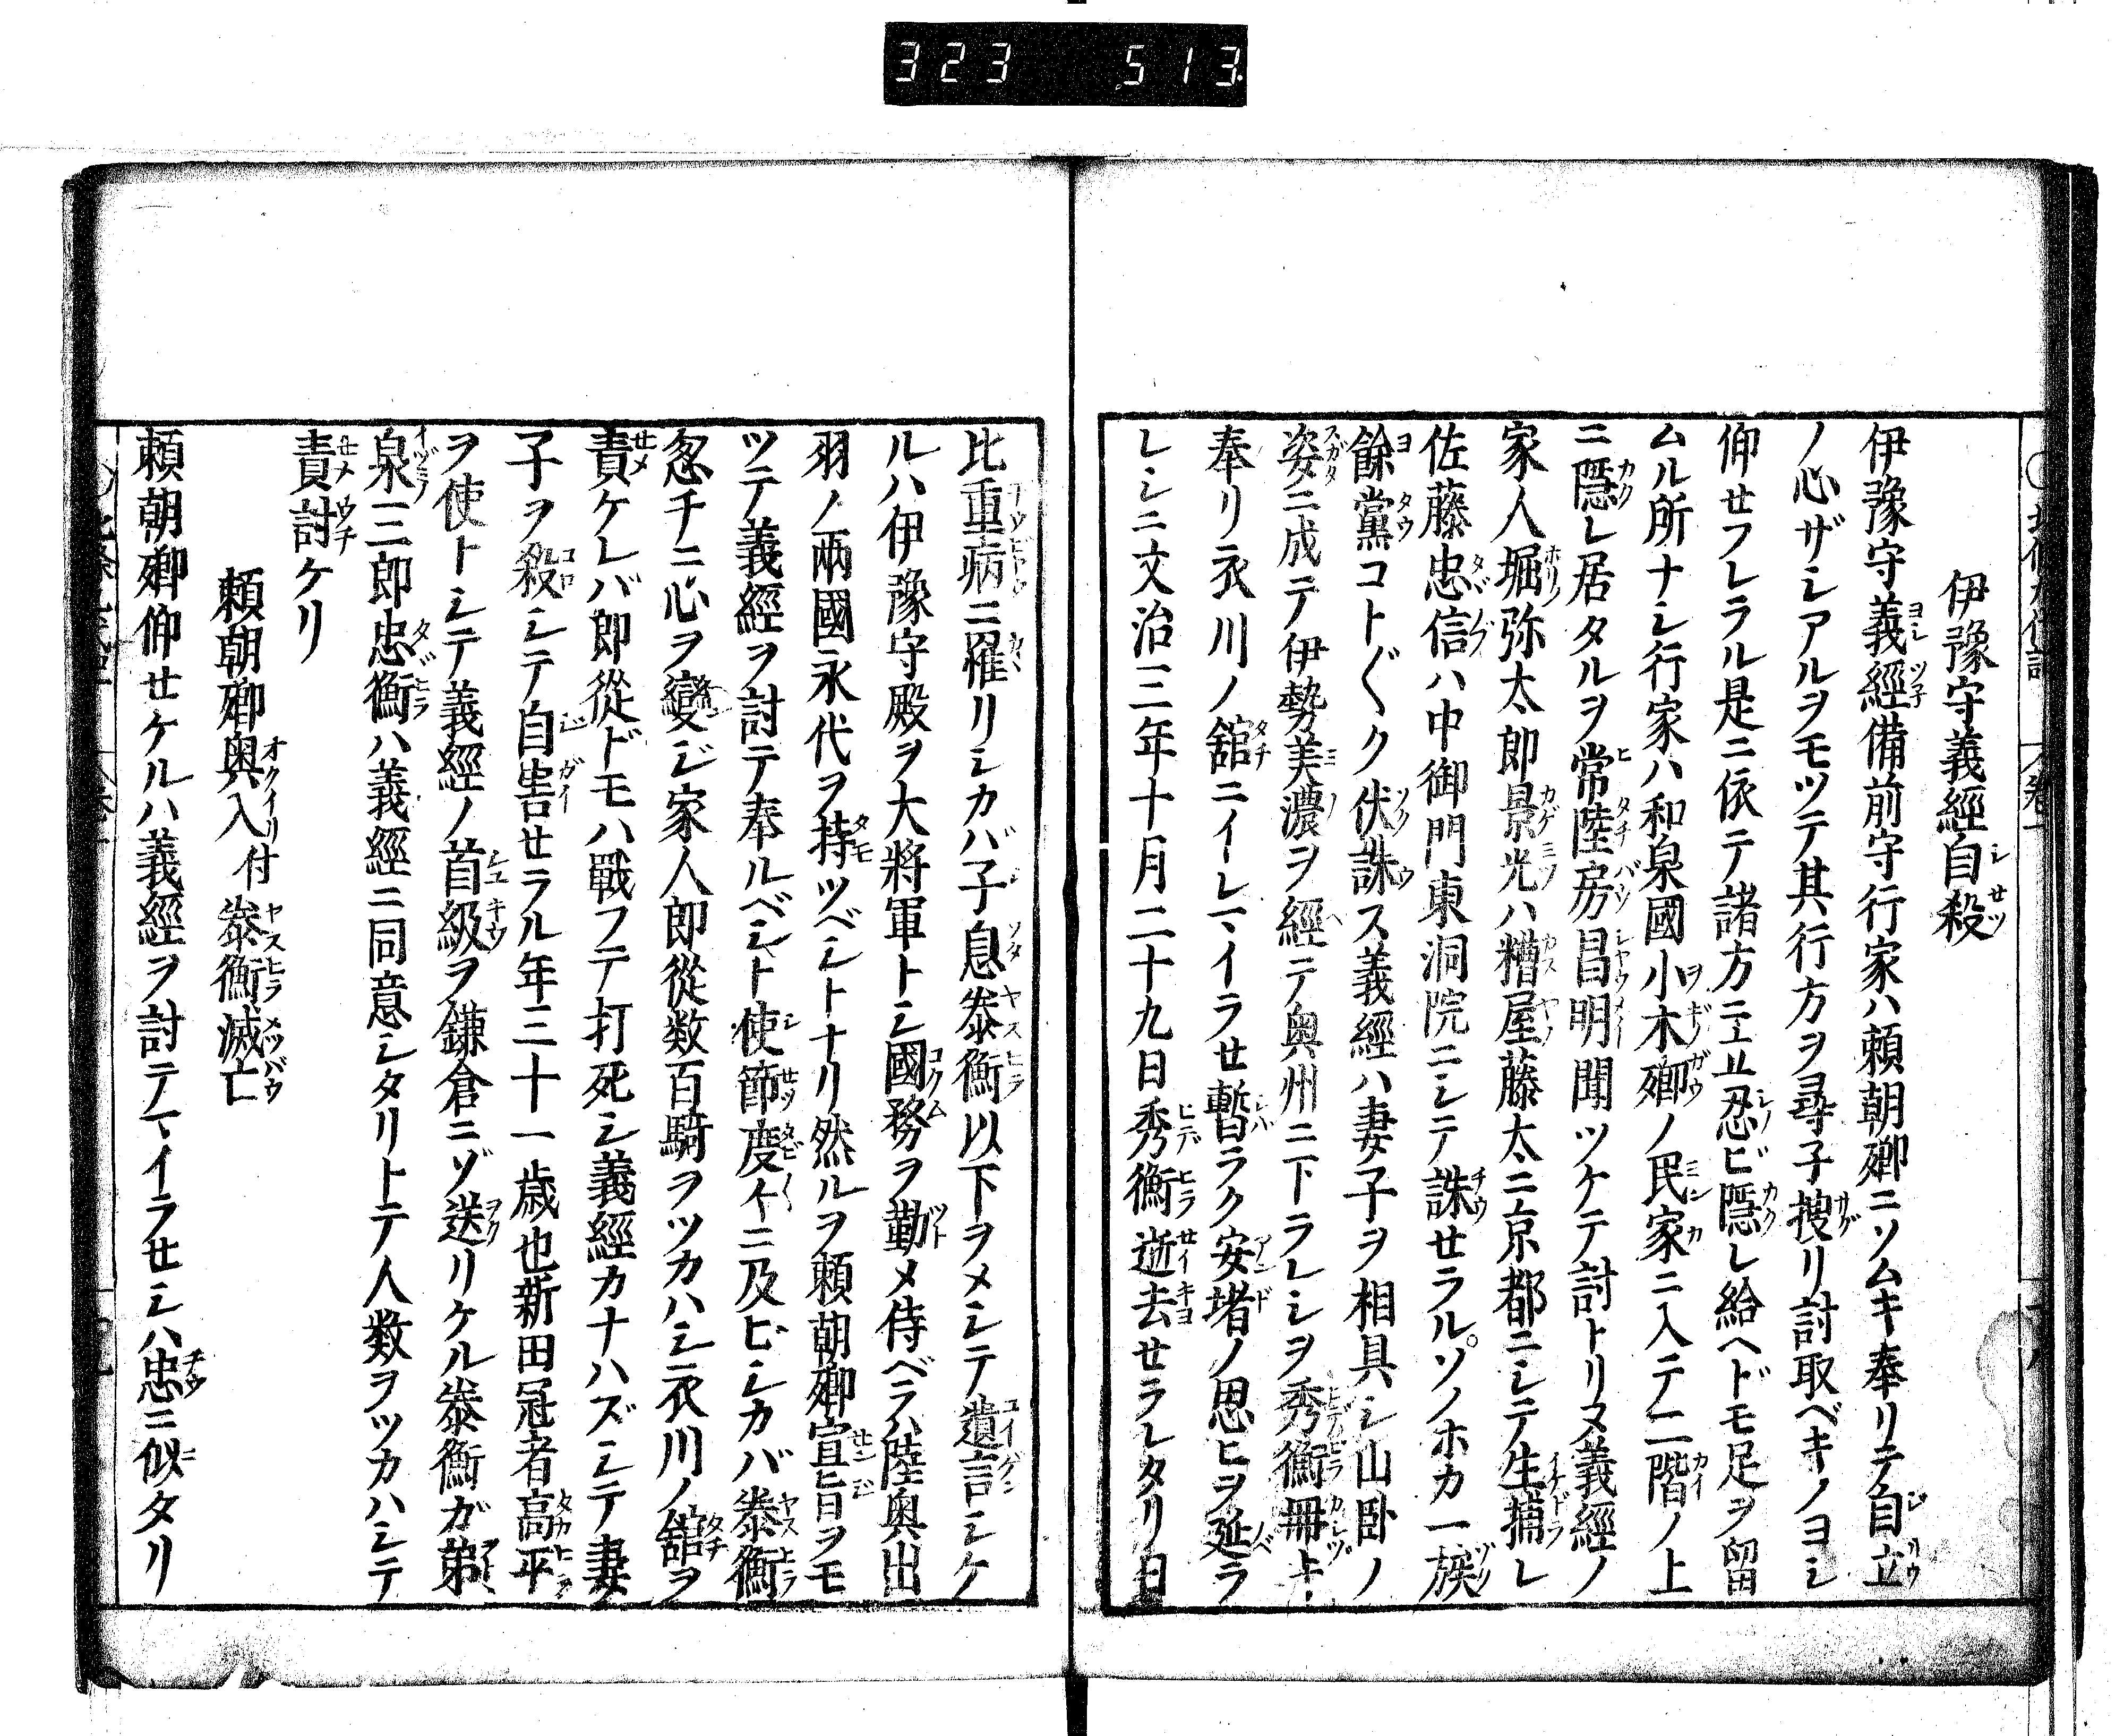 323 513
伊豫守義經自殺
伊豫守義經備前守行家ハ頼朝卿ニソムキ奉リテ自立
ノ心ザシアルヲモツテ其行方ヲ尋子捜リ討取ベキノヨシ
仰セフレラル是ニ依テ諸方ニ立忍ビ隠レ給ヘドモ足ヲ留
ムル所ナシ行家ハ和泉國小木郷ノ民家ニ入テ二階ノ上
ニ隠レ居タルヲ常陸房昌明聞ツケテ討トリヌ義經ノ
家人堀弥太郎景光ハ糟屋藤太ニ京都ニシテ生捕レ
佐藤忠信ハ中御門東洞院ニシテ誅セラル。ソノホカ一族
餘黨コト〴〵ク伏誅ス義經ハ妻子ヲ相具シ山臥ノ
姿ニ成テ伊勢美濃ヲ經テ奥州ニ下ラレシヲ秀衡冊キ
奉リ衣川ノ舘ニイレマイラセ暫ラク安堵ノ思ヒヲ延ラ
レシニ文治三年十月二十九日秀衡逝去セラレタリ日
比重病ニ罹リシカバ子息泰衡以下ヲメシテ遺言シケ
ルハ伊豫守殿ヲ大將軍トシ國務ヲ勤メ侍ベラハ陸奥出
羽ノ兩國永代ヲ持ツベシトナリ然ルヲ頼朝卿宣旨ヲモ
ツテ義經ヲ討テ奉ルベシト使節度々ニ及ビシカバ泰衡
忽チニ心ヲ變ジ家人郎從数百騎ヲツカハシ衣川ノ舘ヲ
責ケレバ郎從ドモハ戰フテ打死シ義經カナハズシテ妻
子ヲ殺シテ自害セラル年三十一歳也新田冠者高平
ヲ使トシテ義經ノ首級ヲ鎌倉ニゾ送リケル泰衡ガ弟
泉三郎忠衡ハ義經ニ同意シタリトテ人数ヲツカハシテ
責討ケリ
頼朝卿奥入付泰衡滅亡
頼朝卿仰セケルハ義經ヲ討テマイラセシハ忠ニ似タリ